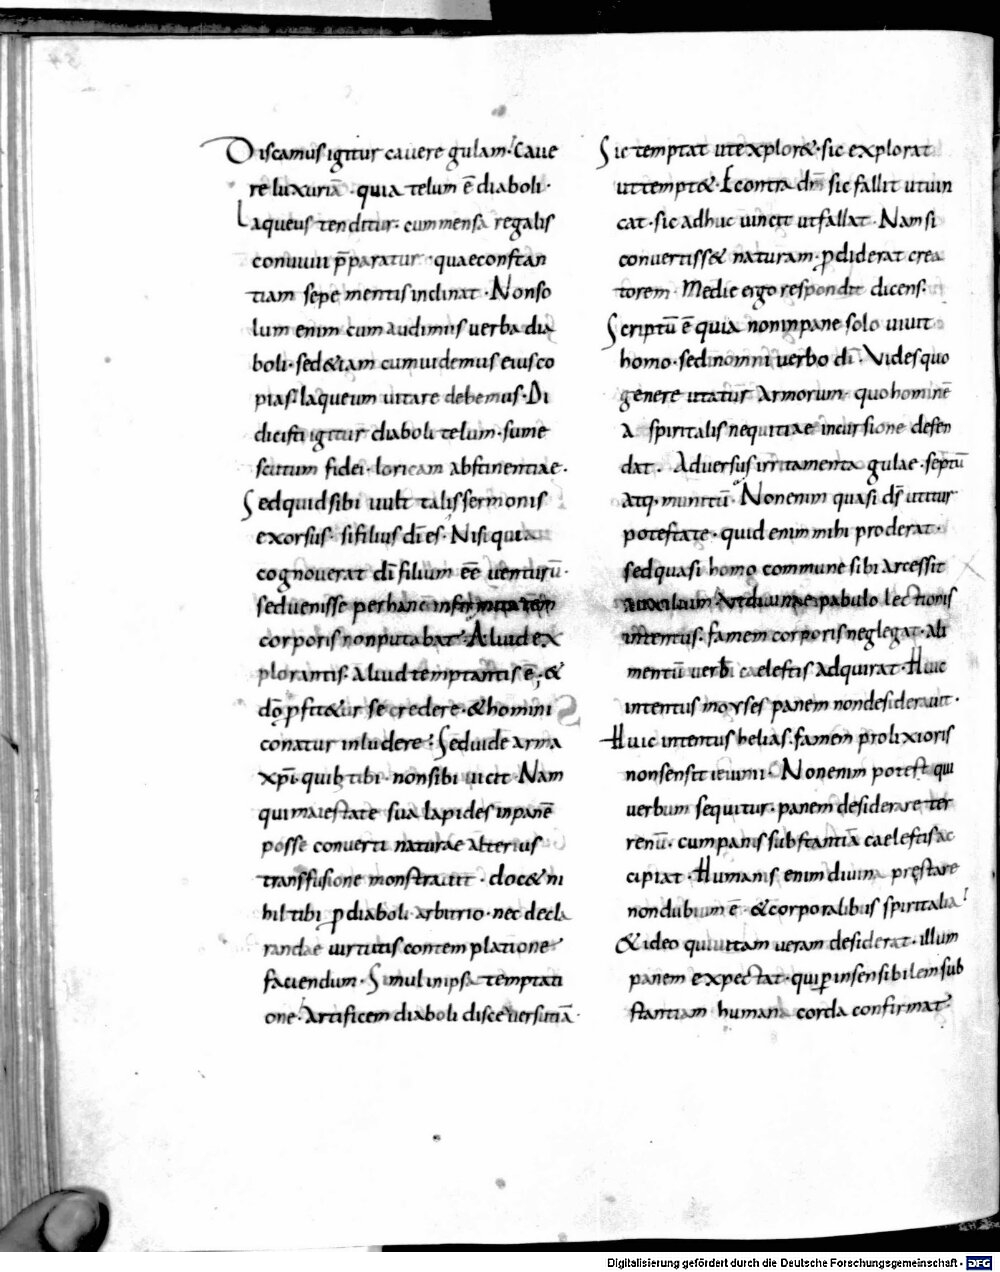 Discamus igitur cavere gulam. Cave
re luxuriā. quia telum ē diaboli.
Laqueus tenditur. cum mensa regalis
convivii p̄paratur. quae constan
tiam sepe mentis inclinat. Non so
lum enim cum audimus verba dia
boli. sed & iam cum videmus eius co
pias. laqueum vitare debemus. Di
dicisti igitur diaboli telum. sume
scutum fidei. loricam abstinentiae.
Sed quid sibi vult talis sermonis
exorsus. si filius dī es. Nisi quia
cognoverat dī filium eē venturū.
sed venisse per hanc infirmitatem
corporis non putabat. Aliud ex
plorantis. aliud temptantis ē. &
dō p̱fit&ur se credere. & homini
conatur inludere. Sed vide arma
xp̄i. quib; tibi. non sibi vicit. Nam
qui maiestate sua lapides in panē
posse converti naturae alterius
transfusione monstravit. doc& ni
hil tibi p̱ diaboli arbitrio. nec decla
randae virtutis contemplatione
faciendum. Simul in ipsa temptati
one. Artificem diaboli disce versutiā.
Sic temptat ut explor&. sic explorat
ut tempt&. Econtra dn̄s sic fallit ut vin
cat. sic adhuc vincit ut fallat. Nam si
convertiss& naturam. p̱diderat crea
torem. Medie ergo respondit dicens.
Scriptū ē quia non in pane solo vivit
homo. sed in omni verbo dī. Vides quo
genere utatur armorum. quo hominē
a spiritalis nequitiae incursione defen
dat. Adversus irritamenta gulae. septū
atq. munitū. Non enim quasi dš utitur
potestate. quid enim mihi proderat.
sed quasi homo commune sibi arcessit
auxilium. Ut divinae pabulo lectionis
intentus. famem corporis neglegat. ali
mentū verbi caelestis adquirat. Huic
intentus moyses panem non desideravit.
Huic intentus helias. famem prolixioris
non sensit ieiunii. Non enim potest qui
verbum sequitur. panem desiderare ter
renū. cum panis substantiā caelestis ac
cipiat. Humanis enim divina prestare
non dubium ē. & corporalibus spiritalia.
& ideo qui vitam veram desiderat. illum
panem expectat. qui p̱ insensibilem sub
stantiam humana corda confirmat.
Digitalisierung gefördert durch die Deutsche Forschungsgemeinschaft - DFG